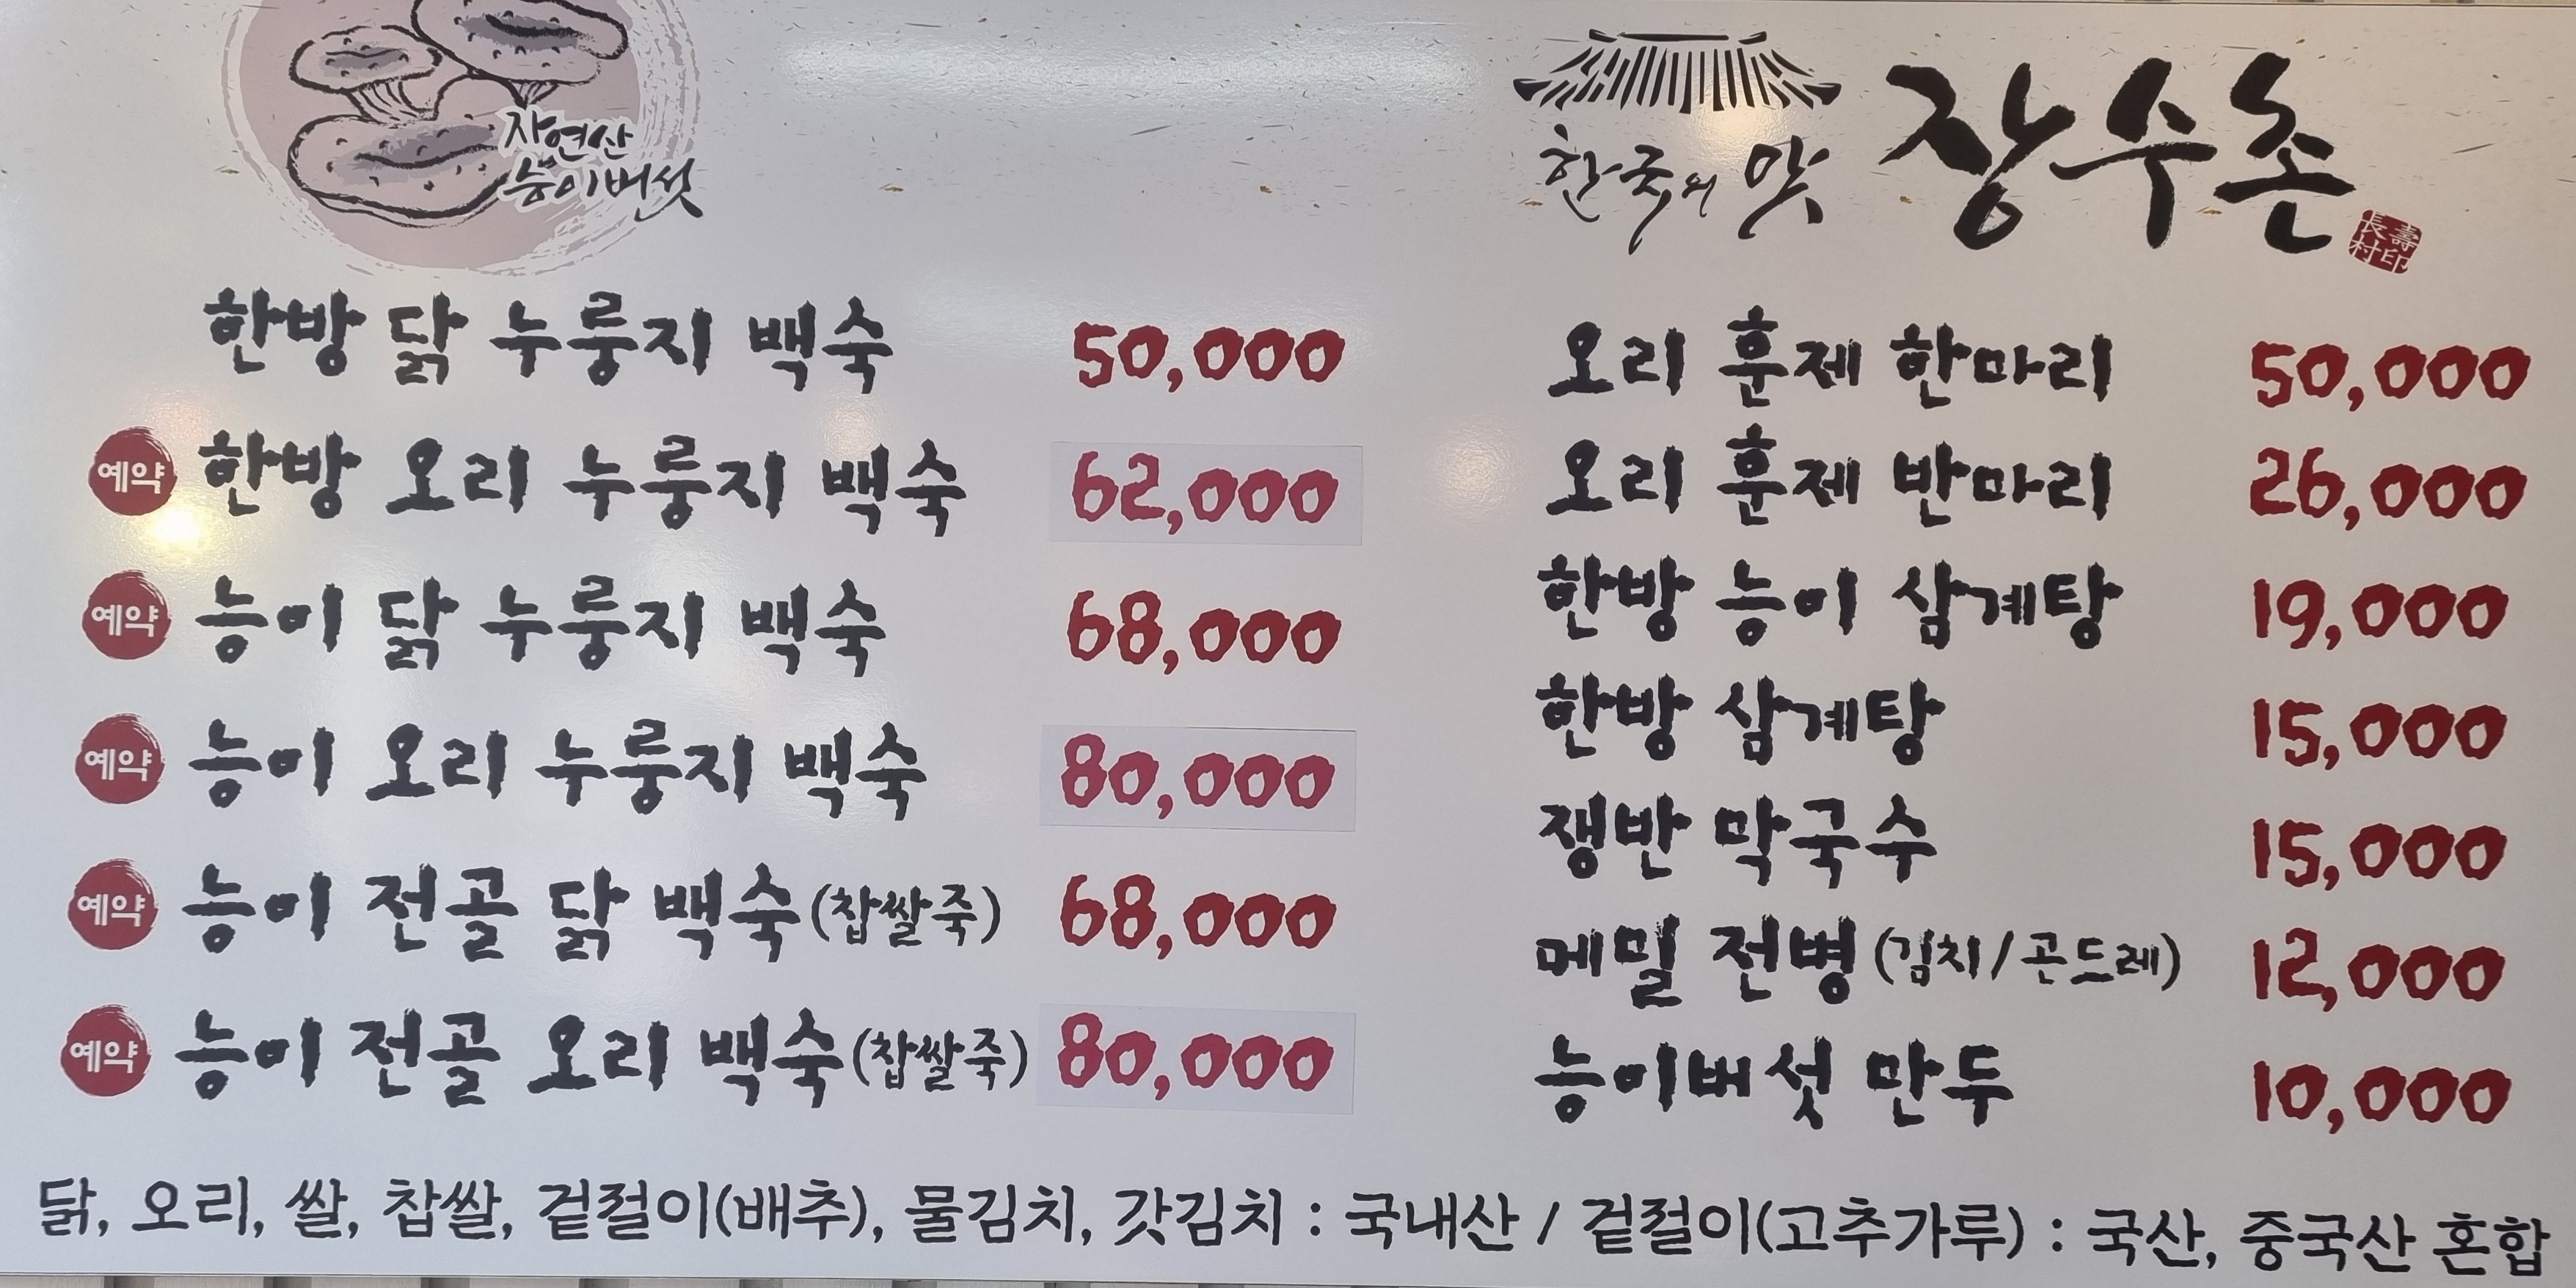 자연산
능이버섯
한국의 맛 장수촌
長壽
村印
한방 닭 누룽지 백숙 50,000
예약 한방 오리 누룽지 백숙 62,000
예약 능이 닭 누룽지 백숙 68,000
예약 능이 오리 누룽지 백숙 80,000
예약 능이 전골 닭 백숙(찹쌀죽) 68,000
예약 능이 전골 오리 백숙(찹쌀죽) 80,000
오리 훈제 한마리 50,000
오리 훈제 반마리 26,000
한방 능이 삼계탕 19,000
한방 삼계탕 15,000
쟁반 막국수 15,000
메밀 전병(김치/곤드레) 12,000
능이버섯 만두 10,000
닭, 오리, 쌀, 찹쌀, 겉절이(배추), 물김치, 갓김치 : 국내산 / 겉절이(고추가루) : 국산, 중국산 혼합